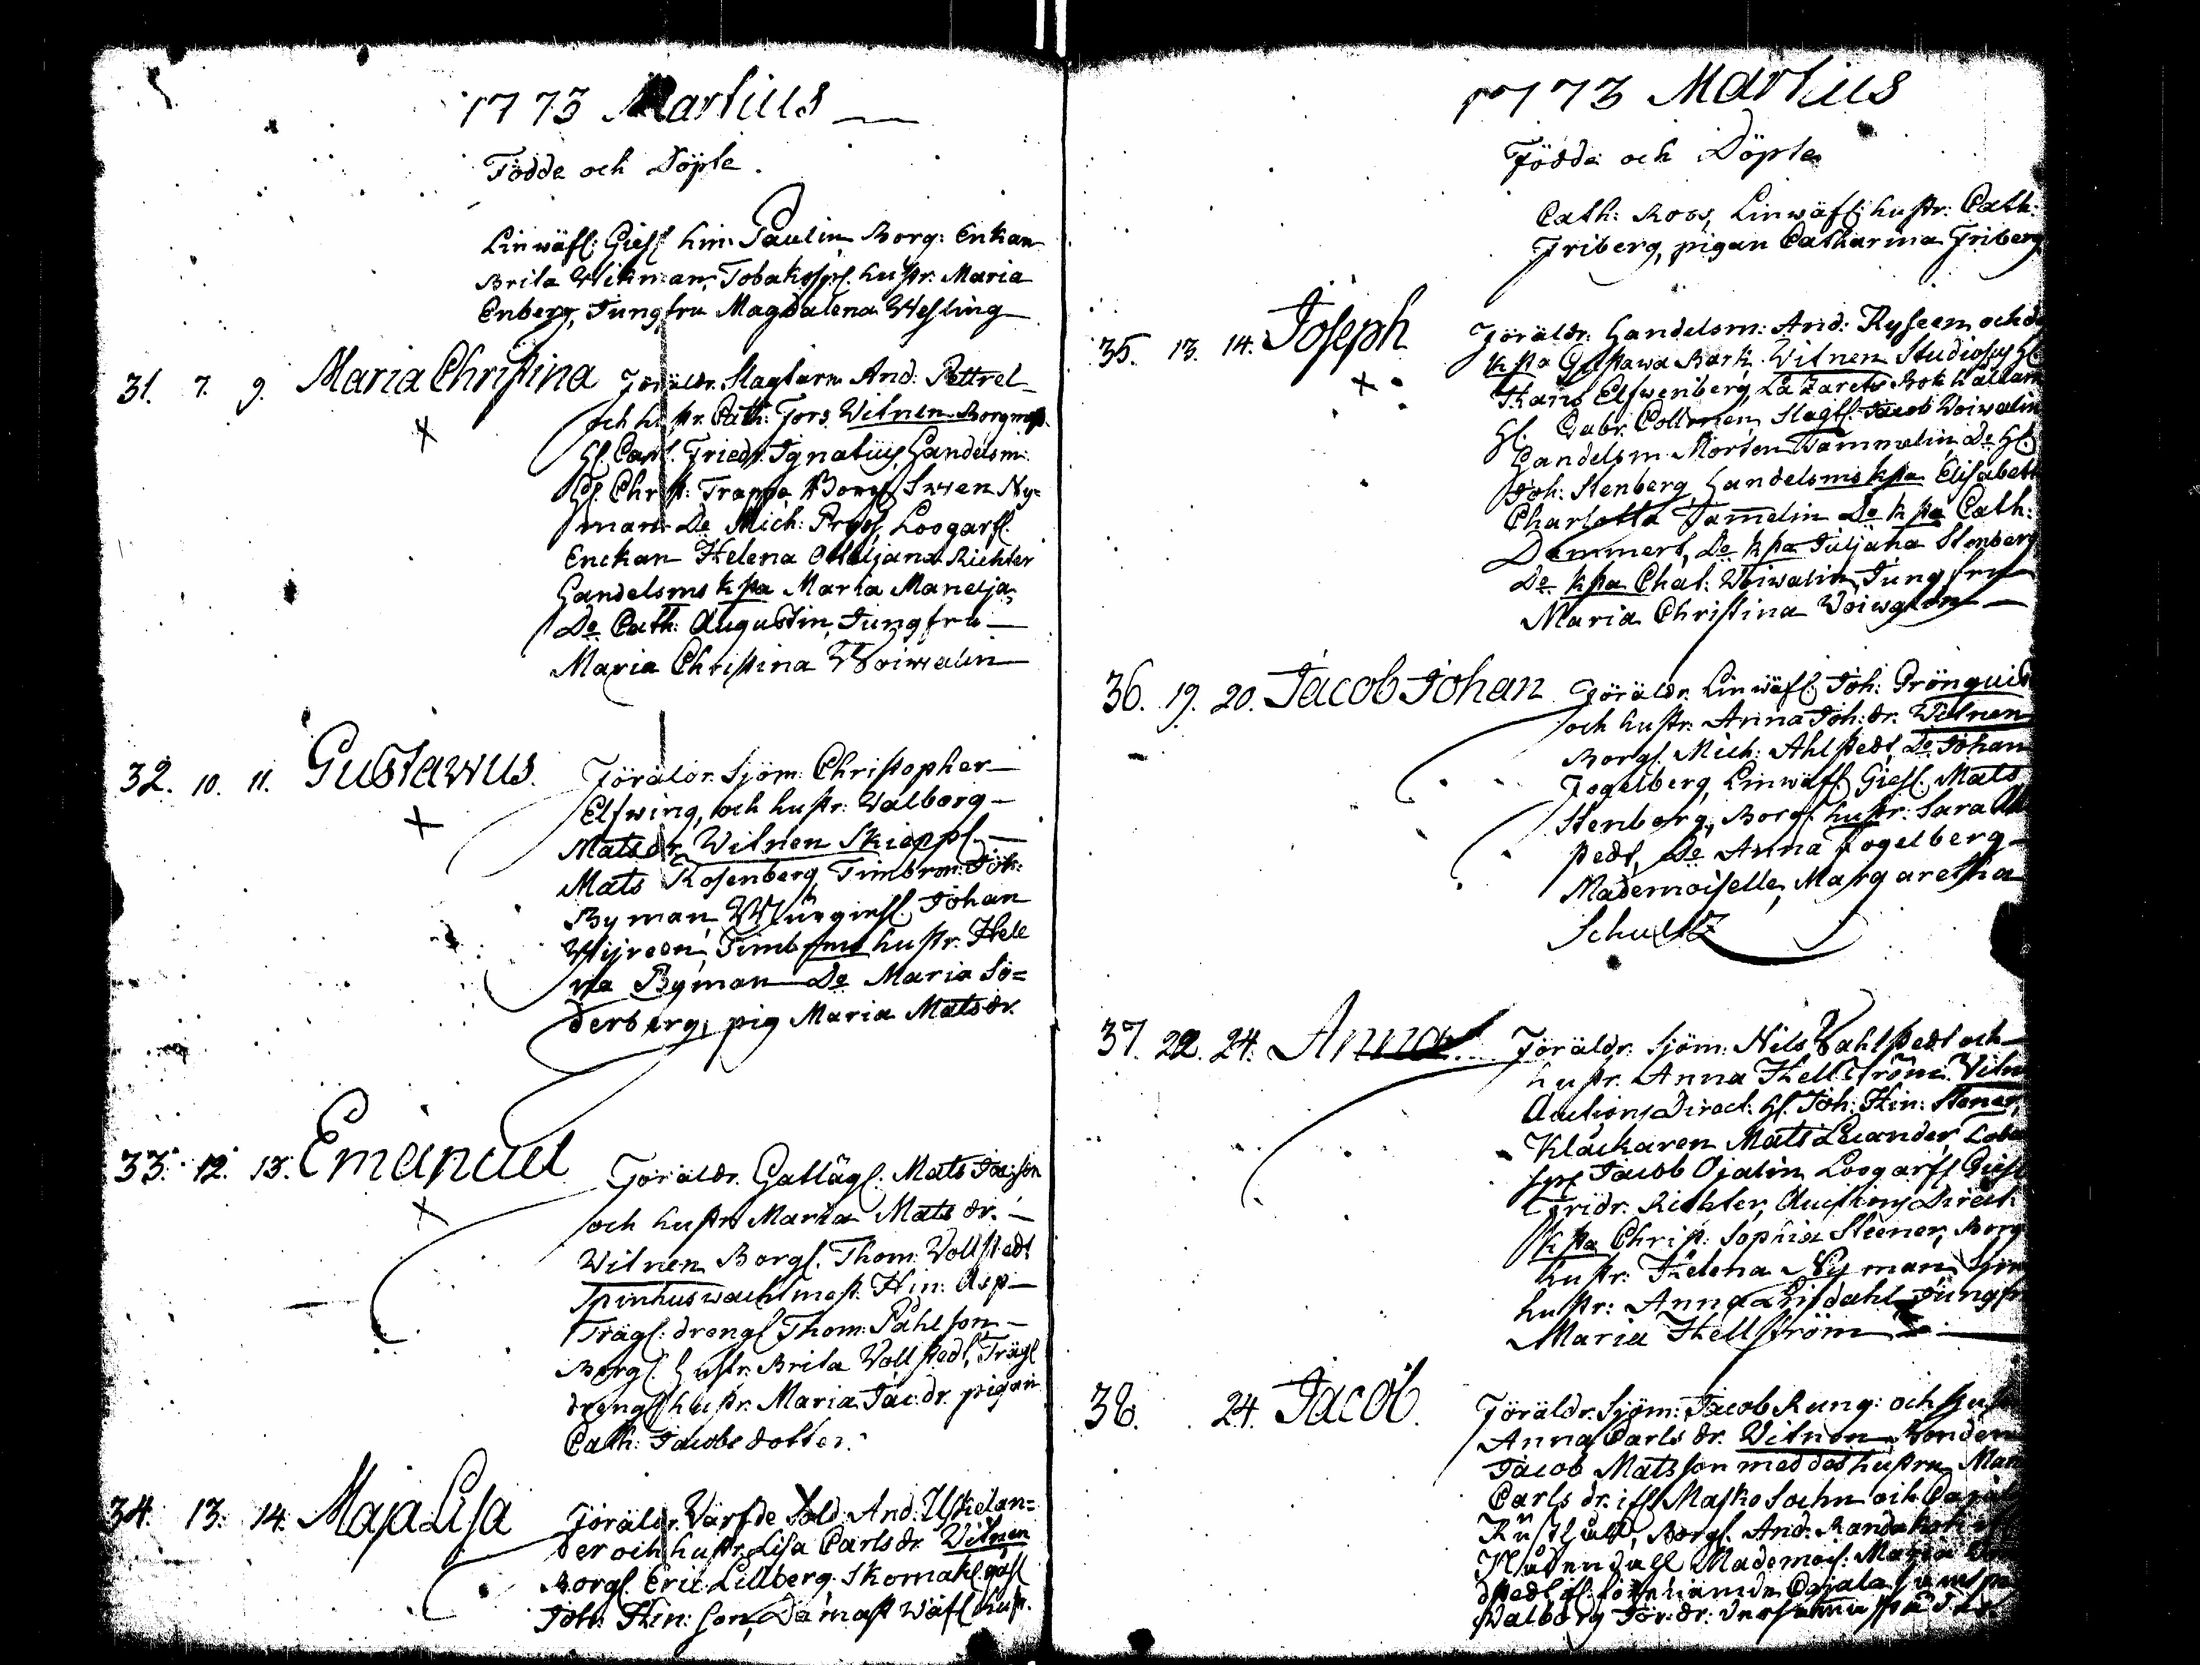 1773 Martius
Födde och Döpte.
Linwäfv: Giesl Hin: Paulin Borg: Enkan
Brita Witman, Tobakssp. hustr. Maria
Enberg, Jungfru Magdalena Wesling
31. 7. 9. Maria Christina Föräldr. Slagtarn And: Pettrel
och hustr. Cath: Fors Witnen Borgmäst.
H. Carl Friedr. Ignatius, Handelsm:
H. Christ: Trapp, Borg Swen Ny=
man Do Mich: Loogarf.
Enckan Helena Ottiljana Richter
Handelsms k sta Marta Manelja,
Do Cath: Augustin, Jungfru
Maria Christina Woiwalin
32. 10. 11. Gustawus. Föräldr. Sjöm: Christopher
Elfwing, och hustr: Walborg
Matsdr, Witnen Skiepp.
Mats Rosenberg, Timbrm: Joh:
Byman, Johan
Timbrms hustr. Hele
na Byman Do Maria Sö=
derberg, pig Maria Matsdr.
33. 12. 13. Emanuel Föräldr. Mats Jacson
och hustr Marta Matsdr.
Witnen Borg. Thom: Wollstedt
Spinhuswachtmest. Hin: Asp
Träg. dreng Thom: Påhlson
Borg. Hustr. Brita Wollstedt, Träg
dreng hustr. Maria Jac:dr. pigan
Cath: Jacobs dotter.
34. 13. 14. Maja Lisa Föräldr. Värfde Sold: And: Uskelan=
der och hustr. Lisa Carlsdr. Witnen
Borg. Eric Lillberg. Skomak. gäsl
Joh: Hin: son, Damast Wäf hust.
1773 Martius
Födde och Döpte
Cath: Roos, Linwäf: hustr: Cath:
Friberg, pigan Catharina Friberg
35. 13. 14. Joseph Föräldr. Handelsm: And: Ryseen och
k sta Gustawa Bark. Witnen Studiosus H.
Elfwenberg, Lazarets Bokhållarn
H. Gabr. Collenen, Slagt. Jacob Woiwalin
Handelsm Morten Tammelin, Do H.
Joh: Stenberg, Handelsms k sta Elisabeth
Charlotta Tam̄elin Do k sta Cath:
Dammert, Do k sta Juljana Stenberg
Do k sta Chat: Woiwalin, Jungfru
Maria Christina Woiwalin
36. 19. 20. Jacob Johan Föräldr. Linwäf: Joh: Grönquist
och hustr. Anna Joh:dr. Witnen
Borg. Mich: Ahlstedt, Do Johan
Fogelberg, Linwäf Giesl. Mats
Stenberg, Borg. hustr. Sara Ahl
stedt, Do Anna Fogelberg
Mademoiselle, Margaretha
Schultz
37. 22. 24. Anna Föräldr. Sjöm: Nils Wahlstedt och
hustr. Anna Hellström. Witn
Auctions Direct: H. Joh: Hin: Stener,
Klåckaren Mats Leander, Toba
Jacob Ojalin, Loogarf Giesl
Fridr. Richter, Auctions Direct:
k sta Christ: Sophia Steener, Borg
hustr: Helena Nyman Sjöm
hustr: Anna Jungfr
Maria Hellström
38. 24. Jacob. Föräldr. Sjöm: Jacob Rung: och Hust
Anna Carlsdr. Witnen Bonden
Jacob Matsson med des hustru Mar
Carlsdr. if. Masko Sochn och
Borg. And: Randakoh
Mademois: Maria
Walborg